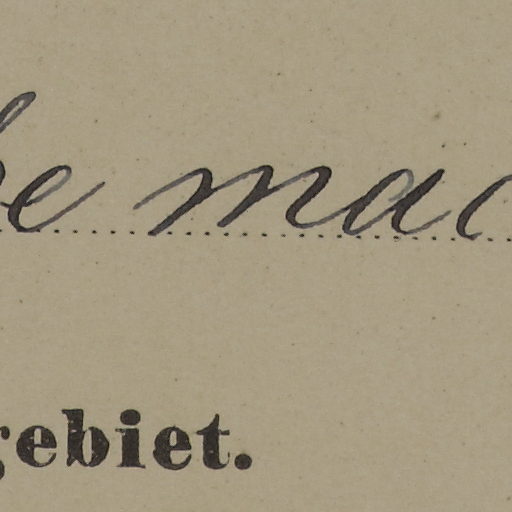 be mac
gebiet.